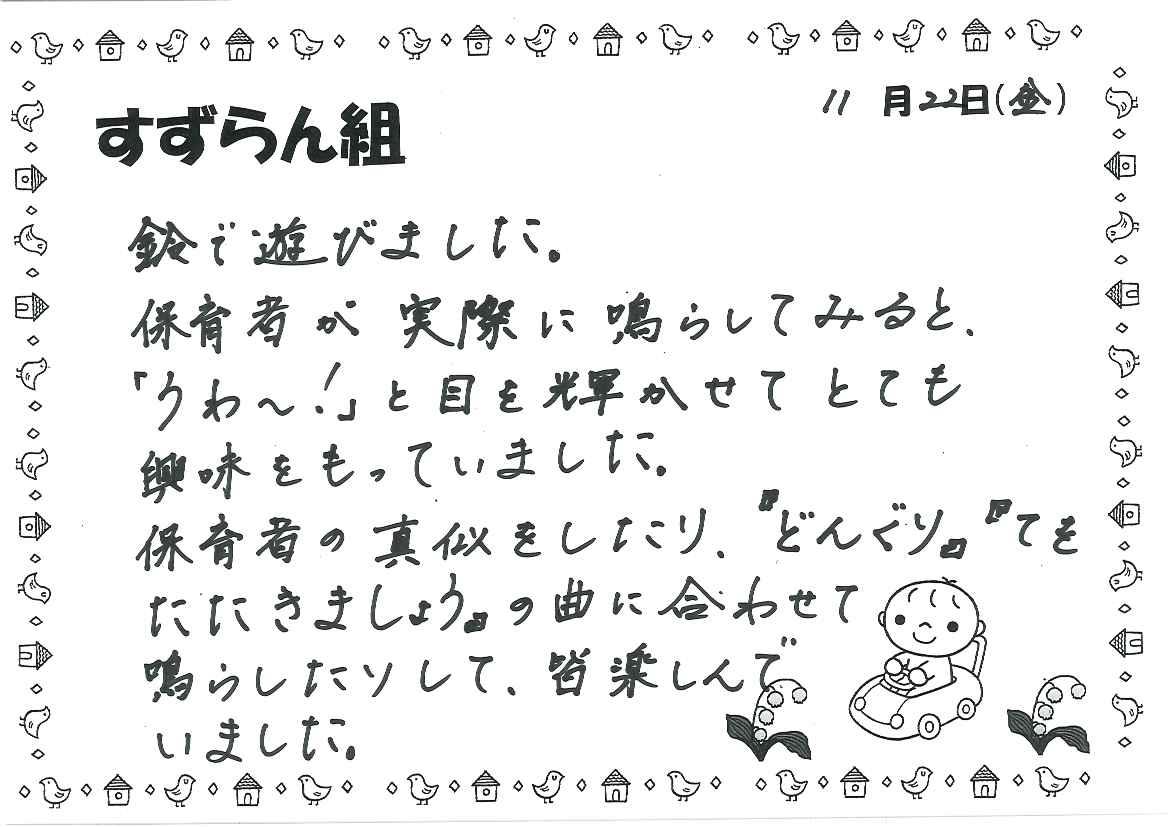 11月22日(金)
すずらん組
鈴で遊びました。
保育者が実際に鳴らしてみると、
「うわ〜!」と目を輝かせてとても
興味をもっていました。
保育者の真似をしたり、『どんぐり』『てを
たたきましょう』の曲に合わせて
鳴らしたりして、皆楽しんで
いました。